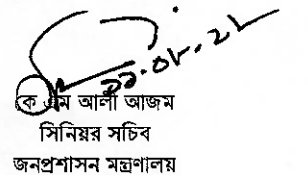 ২২.০৮.২২
কে এম আলী আজম
সিনিয়র সচিব
জনপ্রশাসন মন্ত্রণালয়